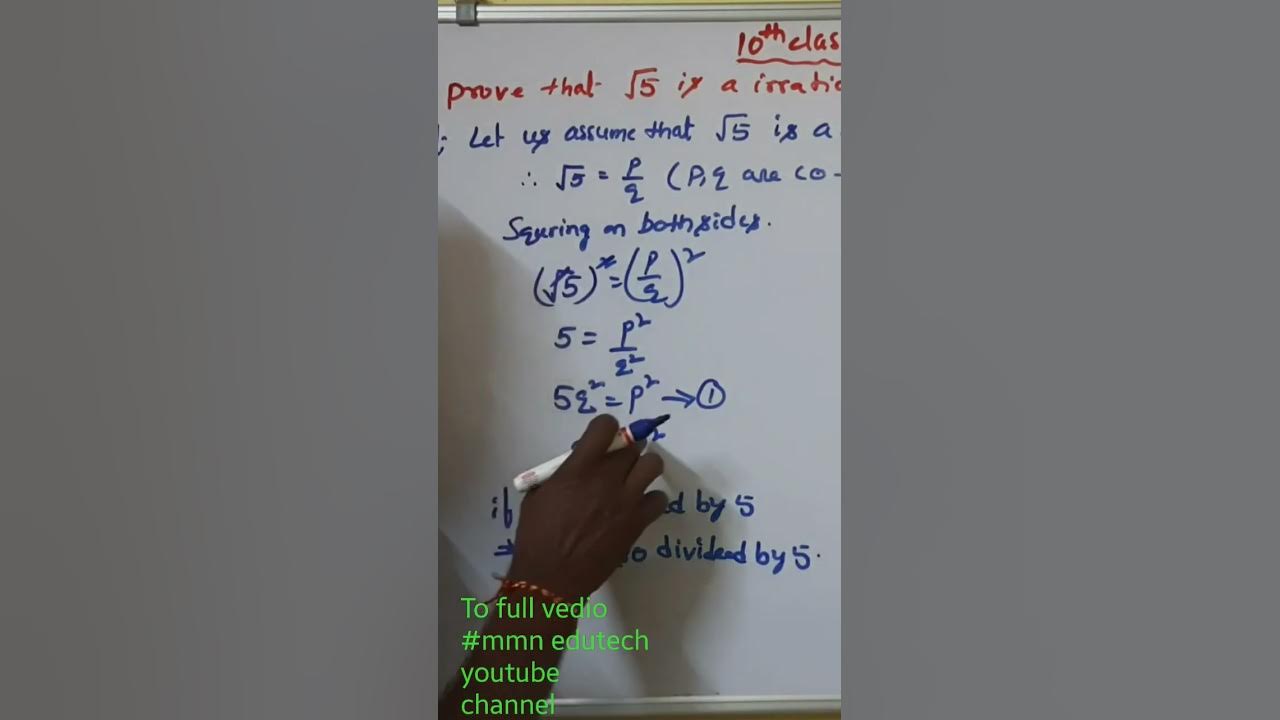 10th clas
prove that √5 is a irratio
; Let us assume that √5 is a
∴ √5 = P/q (P,q are co-
Squring on bothsides.
(√5)² = (P/q)²
5 = P²/q²
5q² = P² → ①
2
if ed by 5
⇒ so divided by 5.
To full vedio
#mmn edutech
youtube
channel